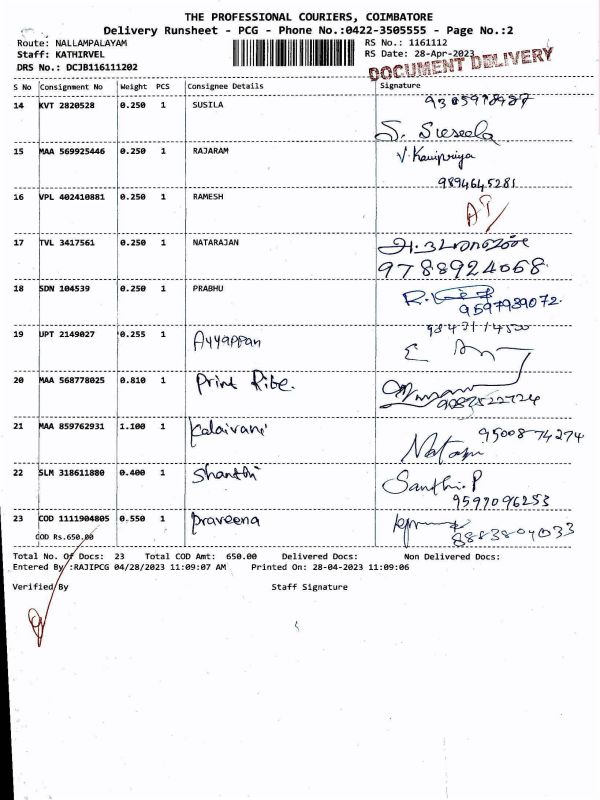 THE PROFESSIONAL COURIERS, COIMBATORE
Delivery Runsheet - PCG - Phone No.:0422-3505555 - Page No.:2
Route: NALLAMPALAYAM RS No.: 1161112
Staff: KATHIRVEL RS Date: 28-Apr-2023
DRS No.: DCJB116111202
DOCUMENT DELIVERY
S No Consignment No Weight PCS Consignee Details Signature
14 KVT 2820528 0.250 1 SUSILA
S. Suseela
15 MAA 569925446 0.250 1 RAJARAM V. Kanipriya
9894645281
16 VPL 402410881 0.250 1 RAMESH
17 TVL 3417561 0.250 1 NATARAJAN
9788924068
18 SDN 104539 0.250 1 PRABHU
9597989072
19 UPT 2149027 0.255 1 Ayyappan
20 MAA 568778025 0.810 1 Print Rite.
21 MAA 859762931 1.100 1 Kalaivani 9500874274
22 SLM 318611880 0.400 1 Shanthi Santhi.P
9597096253
23 COD 1111904805 0.550 1 Praveena
8883804033
COD Rs.650.00
Total No. Of Docs: 23 Total COD Amt: 650.00 Delivered Docs: Non Delivered Docs:
Entered By :RAJIPCG 04/28/2023 11:09:07 AM Printed On: 28-04-2023 11:09:06
Verified By Staff Signature